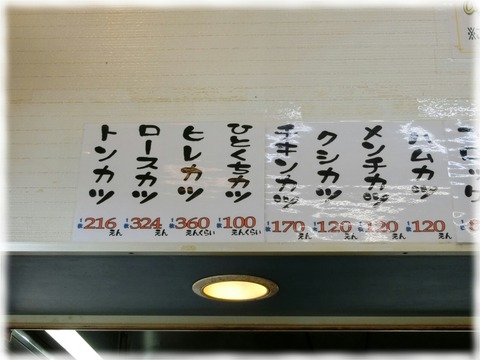 トンカツ
1枚216えん
ロースカツ
1枚324えん
ヒレカツ
1枚360えんくらい
ひとくちカツ
1枚100えんくらい
チキンカツ
1枚170えん
クシカツ
120えん
メンチカツ
120えん
ハムカツ
120えん